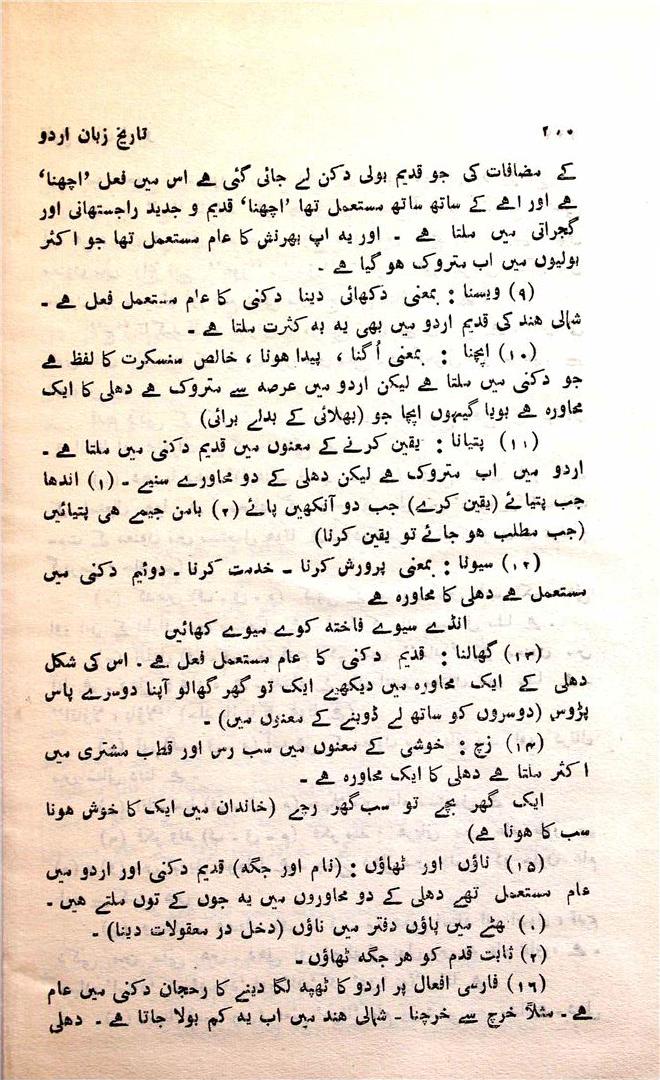 ۲۰۰ تاریخ زبان اردو
کے مضافات کی جو قدیم بولی دکن لے جائی گئی ہے اس میں فعل ’اچھنا‘
ہے اور اہے کے ساتھ ساتھ مستعمل تھا ’اچھنا‘ قدیم و جدید راجستھانی اور
گجراتی میں ملتا ہے ۔ اور یہ اپ بھرنش کا عام مستعمل تھا جو اکثر
بولیوں میں اب متروک ہو گیا ہے ۔
(۹) ویسنا : بمعنی دکھائی دینا دکنی کا عام مستعمل فعل ہے ۔
شمالی ہند کی قدیم اردو میں بھی یہ بہ کثرت ملتا ہے ۔
(۱۰) اپچنا : بمعنی اُگنا ، پیدا ہونا ، خالص سنسکرت کا لفظ ہے
جو دکنی میں ملتا ہے لیکن اردو میں عرصہ سے متروک ہے دھلی کا ایک
محاورہ ہے بویا گیہوں اپچا جو (بھلائی کے بدلے برائی)
(۱۱) پتیانا : یقین کرنے کے معنوں میں قدیم دکنی میں ملتا ہے ۔
اردو میں اب متروک ہے لیکن دھلی کے دو محاورے سنیے ۔ (۱) اندھا
جب پتیائے (یقین کرے) جب دو آنکھیں پائے (۲) بامن جیمے ھی پتیائیں
(جب مطلب ہو جائے تو یقین کرنا)
(۱۲) سیونا : بمعنی پرورش کرنا ۔ خدمت کرنا ۔ دوئیم دکنی میں
مستعمل ہے دھلی کا محاورہ ہے
انڈے سیوے فاختہ کوے میوے کھائیں
(۱۳) گھالنا : قدیم دکنی کا عام مستعمل فعل ہے ۔ اس کی شکل
دھلی کے ایک محاورہ میں دیکھیے ایک تو گھر گھالو آپنا دوسرے پاس
پڑوس (دوسروں کو ساتھ لے ڈوبنے کے معنوں میں) ۔
(۱۴) رچ : خوشی کے معنوں میں سب رس اور قطب مشتری میں
اکثر ملتا ہے دھلی کا ایک محاورہ ہے ۔
ایک گھر بچے تو سب گھر رچے (خاندان میں ایک کا خوش ھونا
سب کا ھونا ہے)
(۱۵) ناؤں اور ٹھاؤں : (نام اور جگہ) قدیم دکنی اور اردو میں
عام مستعمل تھے دھلی کے دو محاوروں میں یہ جوں کے توں ملتے ھیں ۔
(۱) ھٹے میں پاؤں دفتر میں ناؤں (دخل در معقولات دینا) ۔
(۲) ثابت قدم کو ھر جگہ ٹھاؤں ۔
(۱۶) فارسی افعال پر اردو کا ٹھپہ لگا دینے کا رحجان دکنی میں عام
ہے ۔ مثلاً خرچ سے خرچنا ۔ شمالی ہند میں اب یہ کم بولا جاتا ہے ۔ دھلی